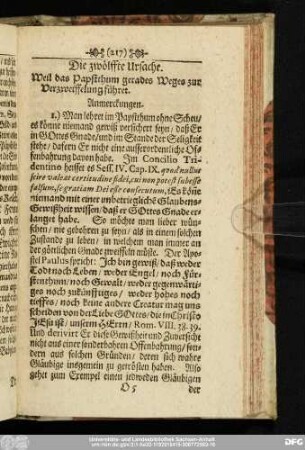 (217)
Die zwölffte Ursache.
Weil das Papstthum gerades Weges zur
Verzweiffelung führet.
Anmerckungen.
1.) Man lehret im Papstthum ohne Scheu/
es könne niemand gewiß versichert seyn/ daß Er
in GOttes Gnade/und im Stande der Seligkeit
stehe/ dafern Er nicht eine ausserordentliche Of-
fenbahrung davon habe. Im Concilio Tri-
dentino heisset es Seff. IV. Cap. IX. quod nullus
scire valeat certitudine fidei, cui non potest subesse
falsum, se gratiam Dei esse consecutum, Es könne
niemand mit einer unbetrieglichē Glaubens-
Gewißheit wissen/ daß er GOttes Gnade er-
langet habe. So möchte man lieber wün-
schen/ nie gebohren zu seyn/ als in einem solchen
Zustande zu leben/ in welchem man immer an
der göttlichen Gnade zweiffeln müste. Der Apo-
stel Paulus spricht: Ich bin gewiß/ daß weder
Todt noch Leben/ weder Engel/ noch Für-
stenthum/ noch Gewalt/ weder gegenwärti-
ges noch zukünfftiges/ weder hohes noch
tieffes/ noch keine andere Creatur mag uns
scheiden von der Liebe GOttes/ die in Christo
JEsu ist/ unserm HErrn/ Rom. VIII. 38. 39.
Und derivirt Er diese Gewißheit und Zuversicht
nicht aus einer sonderbahren Offenbahrung/ son-
dern aus solchen Gründen/ deren sich wahre
Gläubige insgemein zu getrösten haben. Also
gehet zum Exempel einen jedweden Gläubigen
O 5 der
Universitäts- und Landesbibliothek Sachsen-Anhalt
DFG